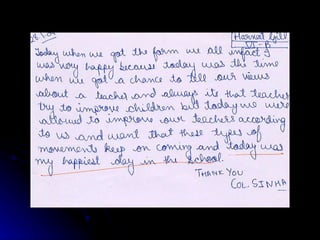 28.1.09
Harkrat Gill
VI-B
Today when we got the form we all infact I
was very happy because today was the time
when we got a chance to tell our views
about a teacher and always its that teachers
try to improve children but today we were
allowed to improve our teachers according
to us and want that these types of
movements keep on coming and today was
my happiest day in the school.
THANK YOU
COL. SINHA